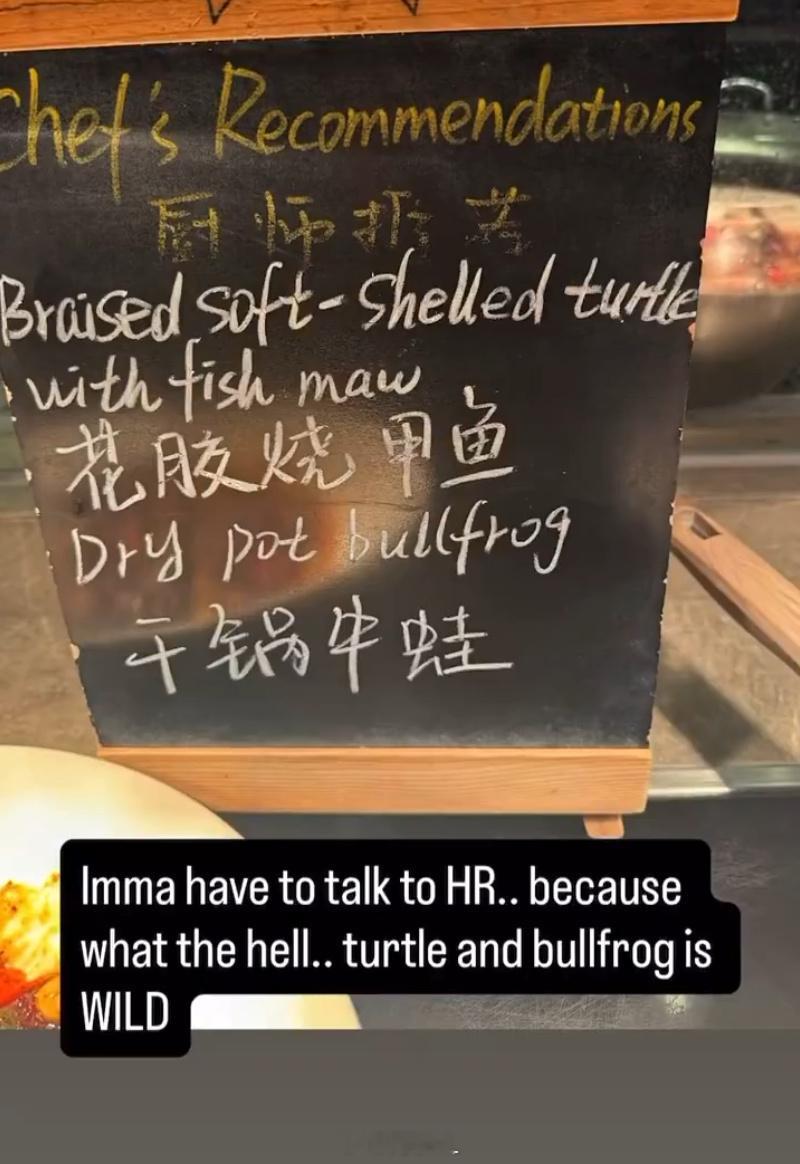 Chef's Recommendations
厨师推荐
Braised soft-shelled turtle
with fish maw
花胶烧甲鱼
Dry pot bullfrog
干锅牛蛙
Imma have to talk to HR.. because
what the hell.. turtle and bullfrog is
WILD